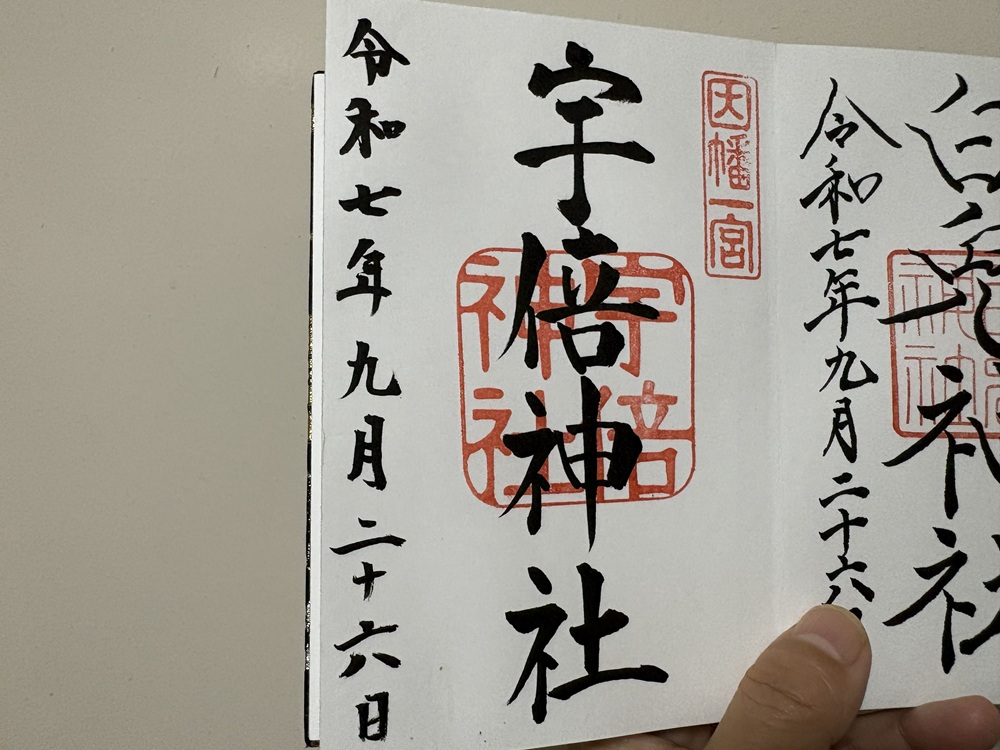 白兎神社
令和七年九月二十六
因幡一宮
宇倍神社
宇倍
神社
令和七年九月二十六日